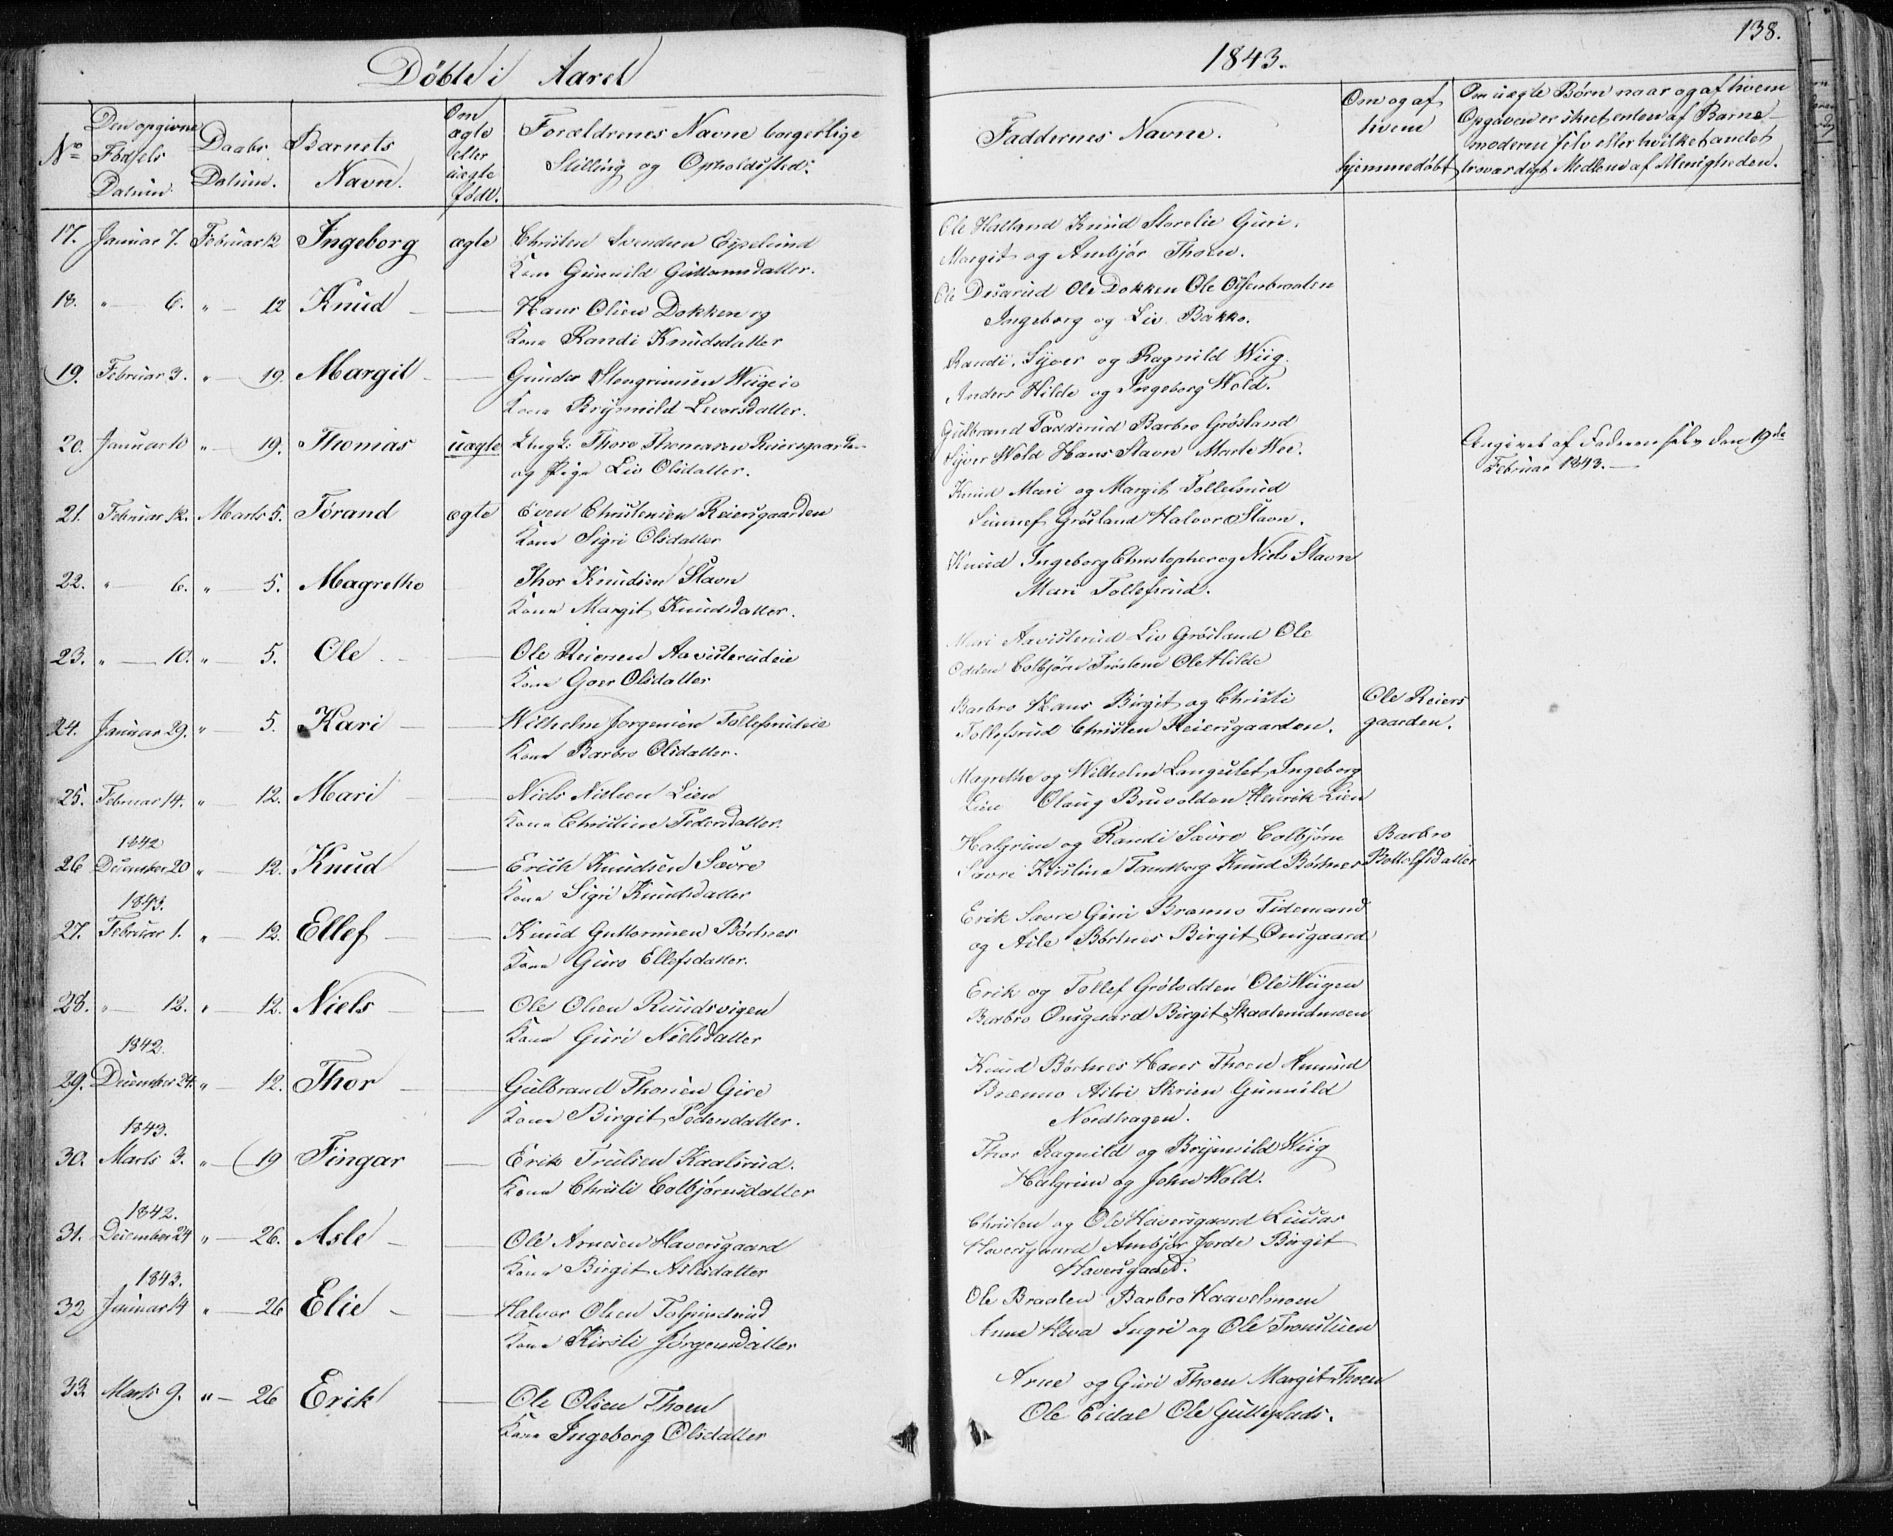 138.
Døbte i Aaret
1843.
No
Den opgivne Fødsels Datum.
Daabs Datum.
Barnets Navn.
Om ægte eller uægte født.
Forældrenes Navne borgerlige Stilling og Opholdssted.
Faddernes Navne.
Om og af hvem hjemmedøbt
Om uægte Børn naar og af hvem Opgaven er skret enten af Barne-moderen selv eller hvilket andet troværdigt Medlem af Menigheden.
17. Januar 7. Februar 12 Ingeborg ægte Christen Svendsen Espelund
Kone Gunnild Guttormsdatter.
Ole Halland Knud Storelie Guri.
Margit og Ambjør Thoen.
18. " 6. " 12 Knud — Hans Olsen Dokken og
Kone Randi Knudsdatter
Ole Desarud Ole Dokken Ole Ølsenbraaten
Ingeborg og Liv Bakko.
19. Februar 3. " 19. Margit — Gunder Stengrimsen Wiigeie
Kone Brynild Levorsdatter.
Randi, Syver og Ragnild Wiig.
Anders Hilde og Ingeborg Wold.
20. Januar 10 " 19. Thomas uægte Ungk: Thore Thomasen Reiersgaard
og Pige Liv Olsdatter.
Gulbrand Padderud Barbro Grøsland
Syver Wold Hans Stavn Marte Wee.
Angivet af Faderen selv den 19de
Februar 1843.
21. Februar 12. Marts 5. Tørand ægte Even Christensen Reiersgaarden
Kone Sigri Olsdatter
Knud Mari og Margit Tollefsrud
Sunnef Grøsland Halvor Stavn.
22. " 6. " 5. Magrethe Thor Knudsen Stavn
Kone Margit Knudsdatter.
Knud Ingeborg Christopher og Niels Stavn
Mari Tollefsrud.
23. " 10. " 5. Ole — Ole Reiersen Aavesterudeie
Kone Goer Olsdatter
Mari Aavisterud Liv Grøsland Ole
Odden Colbjørn Trøstem Ole Hilde
24. Januar 29. " 5. Kari — Wilhelm Jorgensen Tollefsrudeie
Kone Barbro Olsdatter.
Barbro Hans Birgit og Christi
Tollefsrud Christen Reiersgaarden.
Ole Reiers
gaarden.
25. Februar 14. " 12. Mari — Niels Nielsen Lien
Kone Christine Pedersdatter.
Magrethe og Wilhelm Langeslet, Ingeborg
Lien Olaug Bruvolden Henrik Lien
1842
26 December 20 " 12. Knud — Erich Knudsen Sævre
Kone Sigri Knudsdatter
Halgrim og Randi Sævre Colbjørn
Sævre Kirstine Tandberg Knud Børtnes
Barbro
Bottolfsdatter
1843.
27. Februar 1. " 12. Ellef — Knud Guttormsen Børtnes
Kone Guro Ellefsdatter.
Erik Sævre Guri Brænno Tidemand
og Aile Børtnes Birgit Ounsgaard
28. " 12. " 12. Niels — Ole Olsen Ruudsvigen
Kone Guri Nielsdatter
Erik og Tollef Grøtodden Ole Wiigen
Barbro Ounsgaard Birgit Skaalendmoen
1842.
29. December 24. " 12. Thor — Gulbrand Thorsen Gire
Kone Birgit Pedersdatter.
Knud Børtnes Hans Thoen Amund
Brænno Astri Skrien Gunnild
Nordhagen.
1843.
30. Marts 3. " 19 Fingar — Erik Trulsen Kaalsrud.
Kone Christi Colbjørnsdatter
Thor Ragnild og Brynild Wiig
Halgrim og John Wold.
1842.
31. December 24 " 26. Asle — Ole Arnesen Haversgaard
Kone Birgit Aslesdatter
Christen og Ole Haversgaard Lussas
Haversgaard Ambjør Jorde Birgit
Haversgaard.
1843.
32 Januar 14 " 26 Elie — Halvor Olsen Tolpinrud
Kone Kirsti Jørgensdatter
Ole Braaten Barbro Haavelmoen
Anne Hova Sugri og Ole Trønstuen
33. Marts 9. " 26 Erik — Ole Olsen Thoen
Kone Ingeborg Olsdatter
Arne og Guri Thoen Margit Thoen
Ole Eidal Ole Gulleplads.